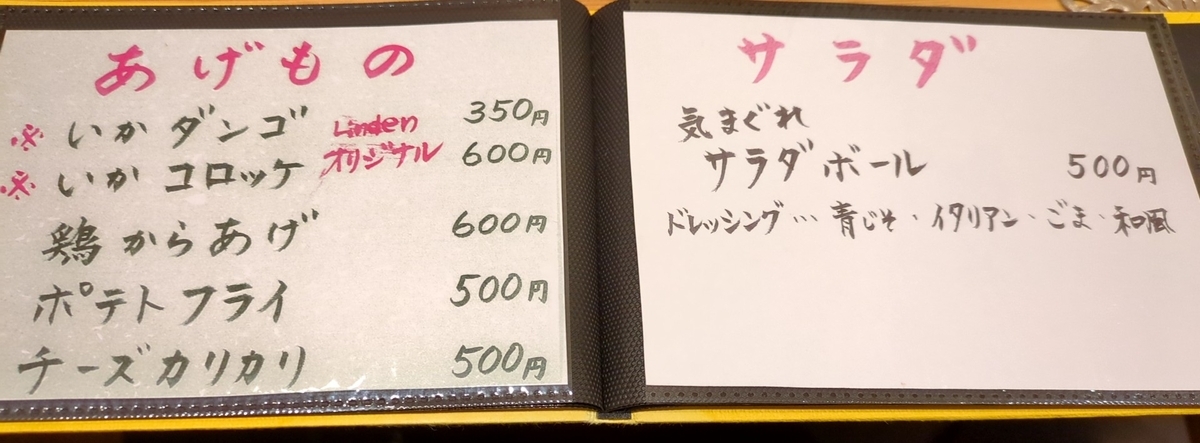 あげもの
※ いか ダンゴ Linden 350円
※ いか コロッケ オリジナル 600円
鶏からあげ 600円
ポテトフライ 500円
チーズカリカリ 500円
サラダ
気まぐれ
サラダボール 500円
ドレッシング… 青じそ・イタリアン・ごま・和風